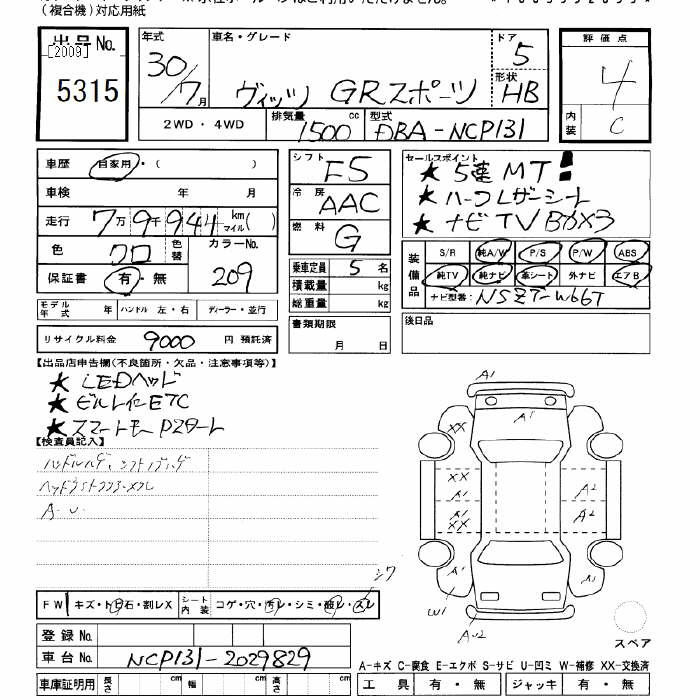 (複合機)対応用紙
出品No.
[2009]
5315
年式
30/7月
車名・グレード
ヴィッツ GRスポーツ
ドア
5
形状
HB
評価点
4
内装
C
2WD・4WD
排気量
1500 cc
型式
DBA-NCP131
車歴 自家用・( )
車検 年 月
走行 7万9千944km マイル( )
色 クロ 色替 カラーNo. 209
保証書 有・無
モデル年式 年 ハンドル 左・右 ディーラー・並行
リサイクル料金 9000 円 預託済
シフト F5
冷房 AAC
燃料 G
乗車定員 5名
積載量 kg
総重量 kg
書類期限
月 日
セールスポイント
★ 5速MT!
★ ハーフレザーシート
★ ナビTV
装備品
S/R 純A/W P/S P/W ABS
純TV 純ナビ 革シート 外ナビ エアB
ナビ型番: NSZT-W66T
後日品
【出品店申告欄(不良箇所・欠品・注意事項等)】
★ LEDヘッド
★ ビルトインETC
★ スマートキー Pスタート
【検査員記入】
A.U.
A1
A1
XX
XX
A1
A1
XX
A2
A2
A1
A1
W1
A2
スペア
シワ
FW キズ・トビ石・割レX シート内装 コゲ・穴・汚レ・シミ・破レ・スレ
登録No.
車台No. NCP131-2029829
車庫証明用 長さ cm 幅 cm 高さ cm
A-キズ C-腐食 E-エクボ S-サビ U-凹ミ W-補修 XX-交換済
工具 有・無 ジャッキ 有・無